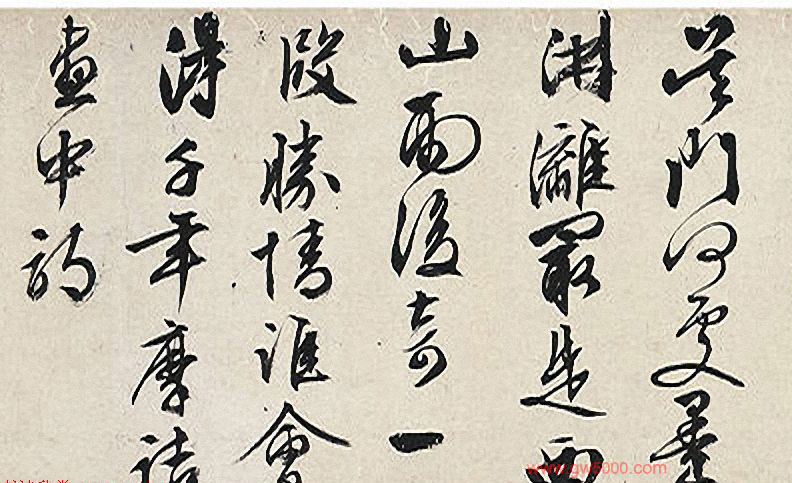 吳門何處墨
淋灕最是西
山雨後奇一
段勝情誰會
得千年摩詰
畫中詩
www.gw5000.com